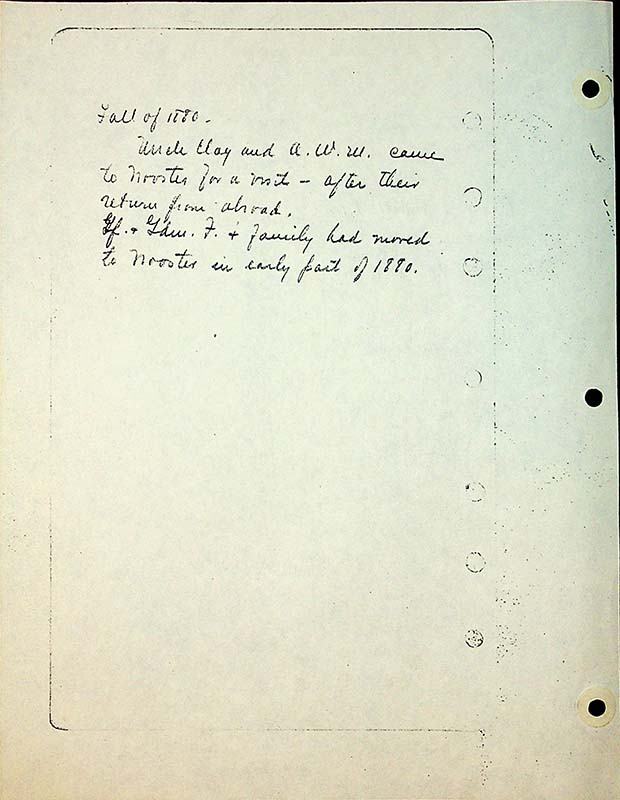 Fall of 1880.
Uncle Clay and A. W. M. came
to Wooster for a visit – after their
return from abroad.
Gf. + Gdm. F. + family had moved
to Wooster in early part of 1880.